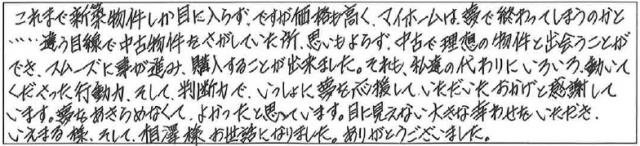 これまで新築物件しか目に入らず、ですが価格も高く、マイホームは夢で終わってしまうのかと
……違う目線で中古物件をさがしていた所、思いもよらず、中古で理想の物件と出会うことが
でき、スムーズに事が進み、購入することが出来ました。それも、私達の代わりにいろいろ、動いて
くださった行動力、そして、判断力で、いっしょに夢を応援して、いただいたおかげと感謝して
います。夢をあきらめなくて、よかったと思っています。目に見えない大きな幸わせをいただき、
いえまる様、そして、相澤様、お世話になりました。ありがとうございました。